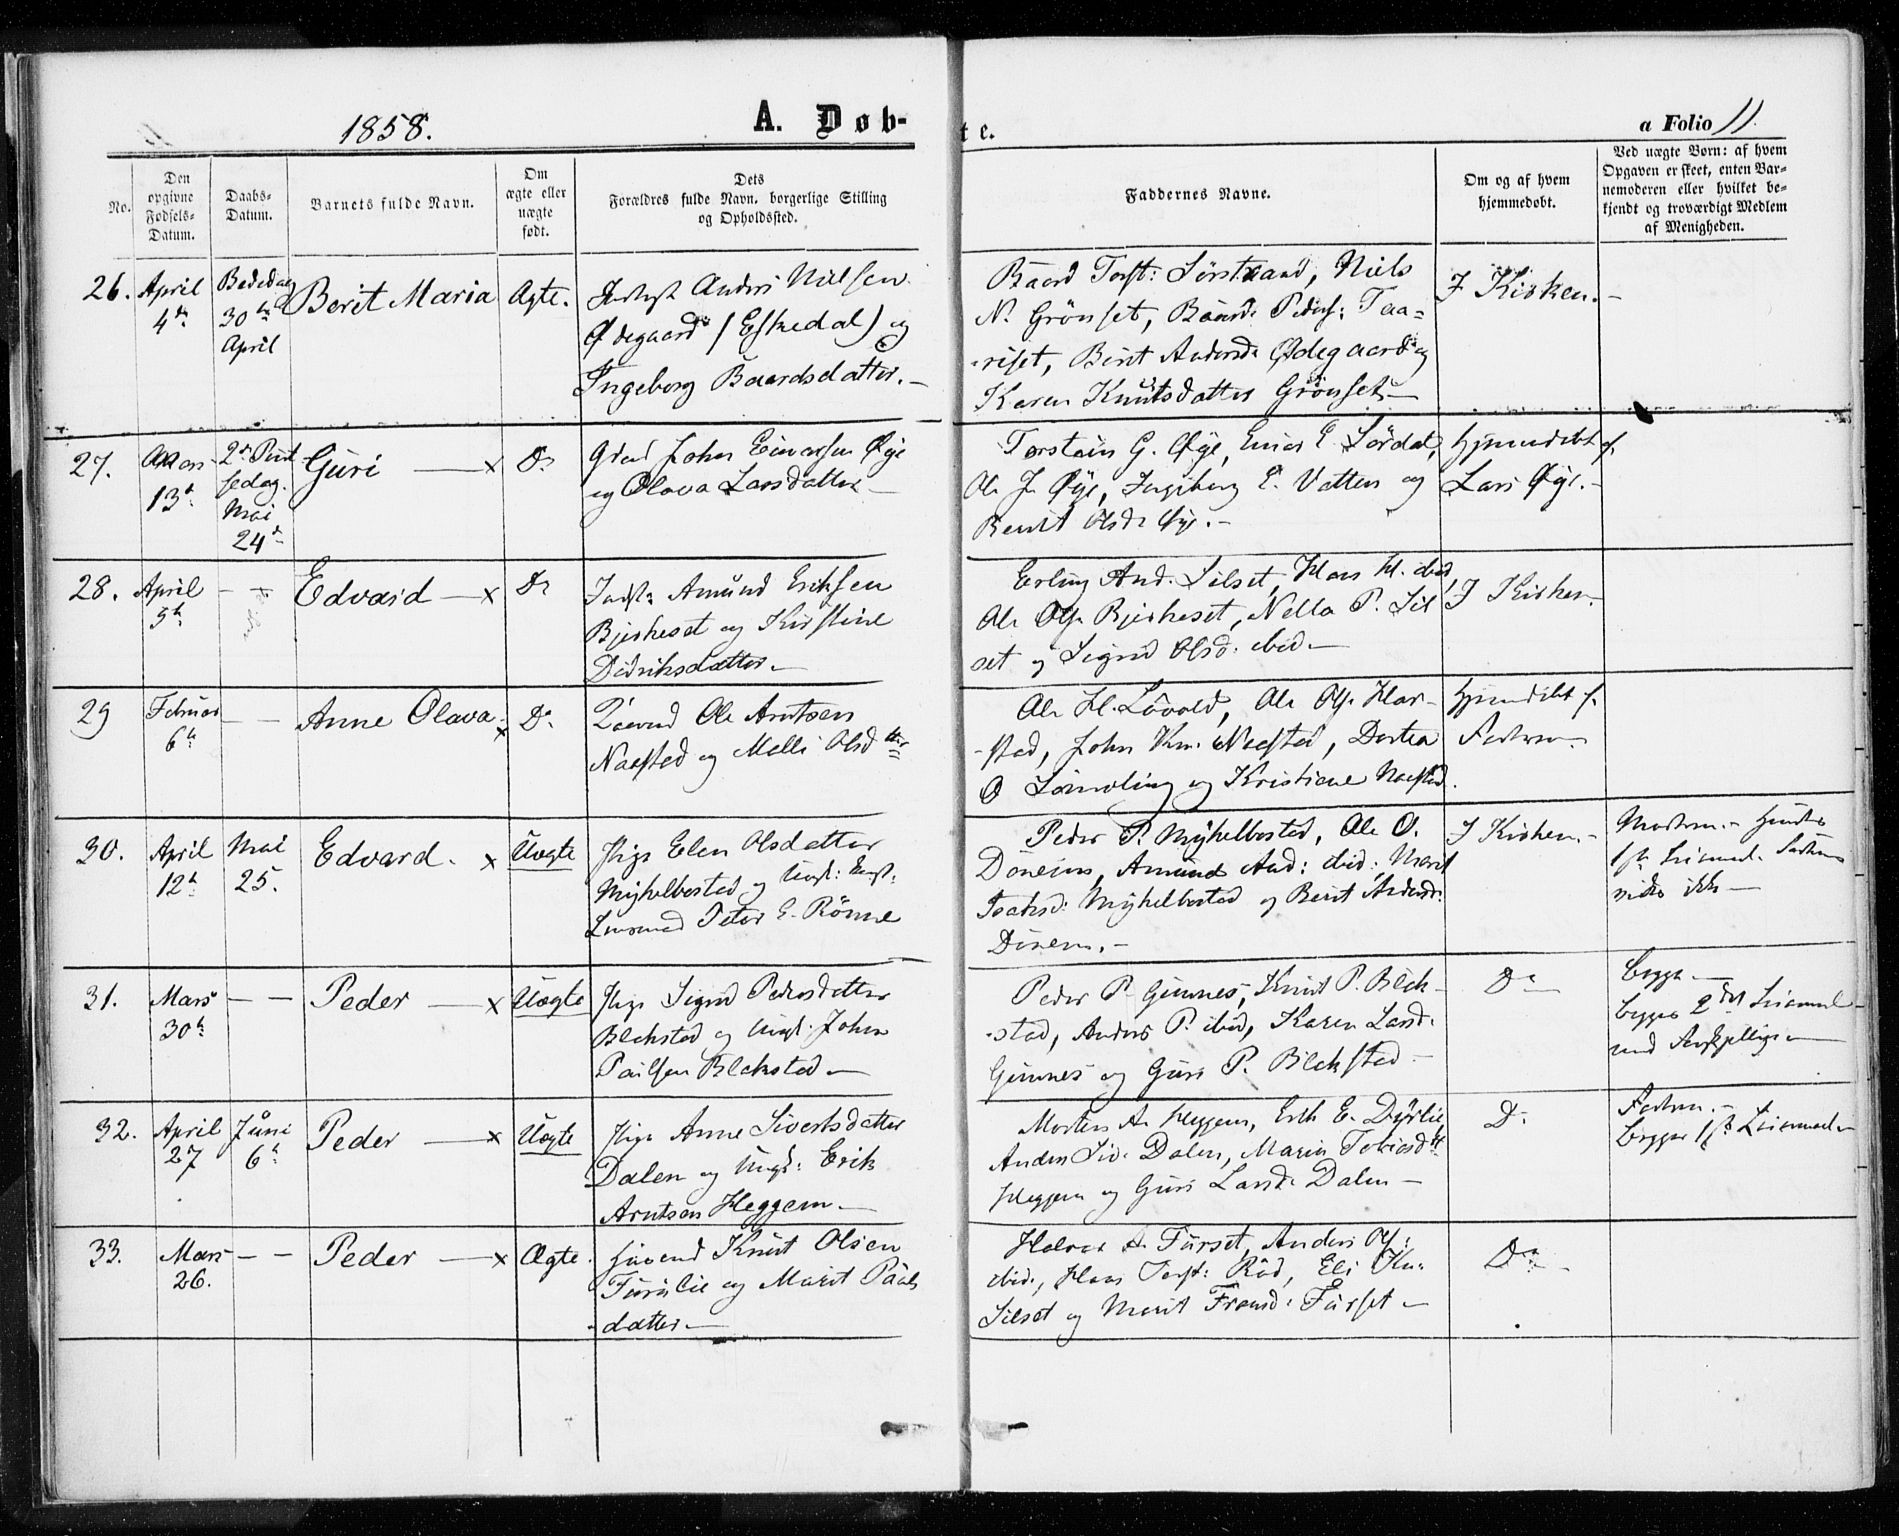 1858.
A. Døb-
te.
a Folio 11.
No.
Den opgivne Fødsels-Datum.
Daabs-Datum.
Barnets fulde Navn.
Om ægte eller uægte født.
Dets Forældres fulde Navn, borgerlige Stilling og Opholdssted.
Faddernes Navne.
Om og af hvem hjemmedøbt.
Ved uægte Børn: af hvem Opgaven er skeet, enten Barnemoderen eller hvilket bekjendt og troværdigt Medlem af Menigheden.
26.
April
4de
Bededag
30te
April
Berit Maria
Ægte.
Anders Nielsen
Ødegaard (Eskedal) og
Ingeborg Baardsdatter.
Baard Torst: Sørstrand, Niels
N. Grönset, Baard Peders: Taa-
-riset, Berit Andersd: Ødegaard og
Karen Knutsdatter Grönset
I Kirken.
27.
Mars
13de
2den Pint
sedag.
Mai
24de
Guri
Do
John Einersen Øye
og Olava Larsdatter
Torstein G. Øye, Einer E. Lördal,
Ole J. Øye, Ingeborg E. Vatten og
Berit Olsd: Øye.
Hjemmedöbt f.
Lars Øye.
28.
April
5te
Edvard
Do
Indst: Amund Eriksen
Bjerkeset og Kirstine
Didriksdatter
Erling And. Silset, Hans H. ibid,
Ole Ols. Bjerkeset, Nella P. Sil
set og Sigrid Olsd: ibid
I Kirken.
29
Februar
6te
Anne Olava
Do
Ole Arntsen
Naastad og Malli Olsdtter
Ole H. Lövold, Ole Ols. Har-
-stad, John Kn. Naastad, Dortea
O og Kristiane Naastad.
Hjemmedöbt f.
Faderen.
30.
April
12te
Mai
25.
Edvard.
Uægte
Pige Elen Olsdatter
Myhelbostad og Ungk:
Peter E. Rönne
Peder P. Myhelbostad, Ole O.
Dönem, Amund And: ibid; Marit
Isaksd: Myhelbostad og Berit Andersd:
Dönem.
I Kirken.
Moderen. Hendes
1ste Leiermaal. Faderens
vides ikke
31.
Mars
30te
Peder
Uægte
Pige Sigrid Pedersdatter
Blekstad og Ungk: John
Paulsen Blekstad
Peder P. Gimnes, Knut P. Blek-
-stad, Anders P. ibid, Karen Larsd:
Gimnes og Guri P. Blekstad
Do
Begge
begges 2det Leiermaal
med Forskjellige
32.
April
27
Juni
6te
Peder
Uægte
Pige Anne Sivertsdatter
Dalen og Ungk: Erik
Arntsen Heggem
Morten A. Heggem, Erik E. Dyrlie,
Anders Siv. Dalen, Marin Tobiasdtr
Heggem og Guri Larsd. Dalen
Do
Faderen.
begges 1ste Leiermaal
33.
Mars
26.
Peder
Ægte.
Knut Olsen
Furulie og Marit Paals
-datter
Halvor A. Furset, Anders Ols:
ibid., Hans Torst: Röd, Eli Kn:
Silset og Marit Fransd: Furset
Do